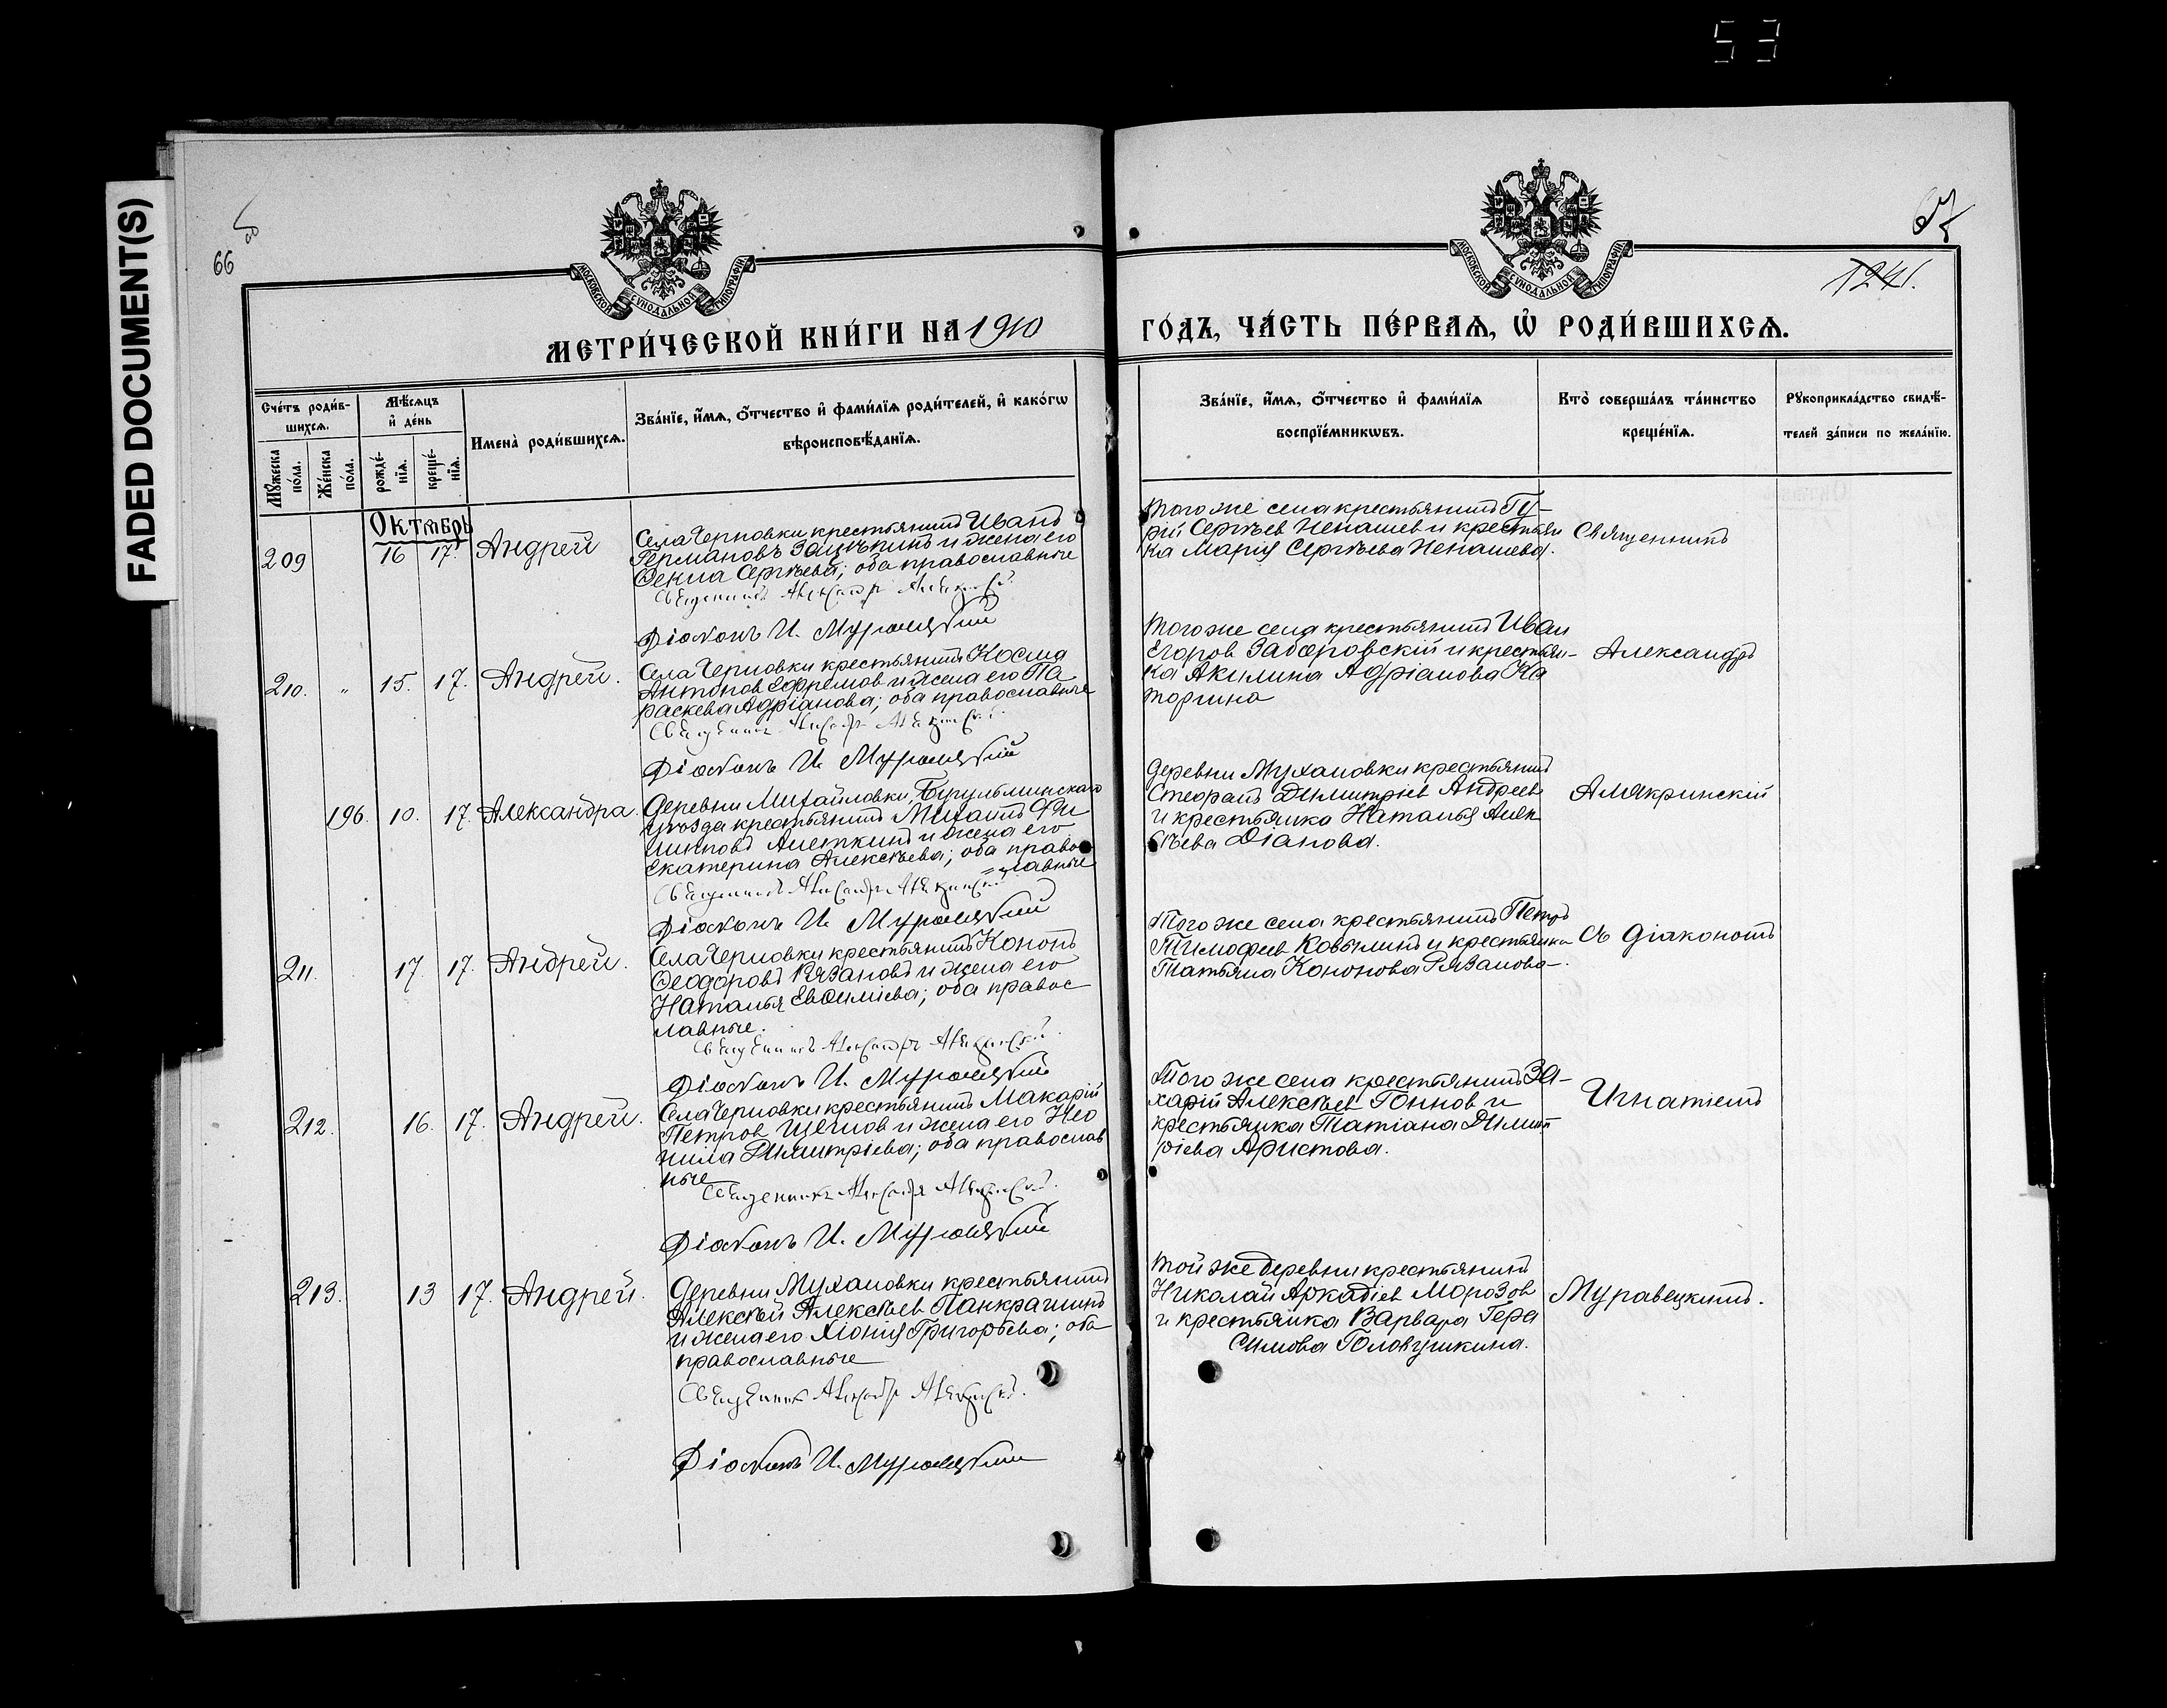 53
FADED DOCUMENT(S)
66
67
124.
МОСКОВСКОЙ СѴНОДАЛЬНОЙ ТИПОГРАФІИ
МОСКОВСКОЙ СѴНОДАЛЬНОЙ ТИПОГРАФІИ
МЕТРИ́ЧЕСКОЙ КНИ́ГИ НА 1910
ГО́ДЪ, ЧА́СТЬ ПЕ́РВАѦ, Ѡ҆ РОДИ́ВШИХСѦ.
Сче́тъ роди́в-
шихсѧ.
Мꙋ́жеска
по́ла.
Же́нска
по́ла.
Мѣ́сѧцъ
и҆ де́нь
рожде́-
нїѧ.
креще́-
нїѧ.
Имена̀ роди́вшихсѧ.
Зва́нїе, и҆́мѧ, ѻ҆́тчество и҆ фами́лїѧ роди́телей, и҆ како́гѡ
вѣроисповѣ́данїѧ.
Зва́нїе, и҆́мѧ, ѻ҆́тчество и҆ фами́лїѧ
воспрїе́мникѡвъ.
Кто̀ соверша́лъ та́инство
креще́нїѧ.
Рꙋкоприкла́дство свидѣ́-
телей за́писи по жела́нїю.
Октябрь
209
16 17. Андрей
Села Черновки крестьянинъ Иванъ
Германовъ и жена его
Ѳекла Сергѣева; оба православные
Священникъ Александръ Алякринскій
Діаконъ И. Муравецкій
Того же села крестьянинъ Гу-
рій Сергѣев Ненашев и крестьян
ка Марія Сергѣева Ненашева.
Священникъ
210. „ 15. 17. Андрей.
Села Черновки крестьянинъ Косма
Антонов Ефремов и жена его Па
раскева Адріанова; оба православные
Священникъ Александръ Алякринскій.
Діаконъ И. Муравецкій
Того же села крестьянинъ Иван
Егоров Заборовскій и крестьян-
ка Акилина Адріанова Ка
торгина
Александръ
196. 10. 17. Александра.
Деревни Михайловки,
уѣзда крестьянинъ Михаилъ Фи
липповъ и жена его
Екатерина Алексѣева; оба право
=славные
Священникъ Александръ Алякринскій
Діаконъ И. Муравецкій
Деревни Мухановки крестьянинъ
Стефанъ Димитріев Андреевъ
и крестьянка Наталья Алек
сѣева Діанова.
Алякринскій
211. 17. 17. Андрей.
Села Черновки крестьянинъ Кононъ
Ѳеодоровъ Рязановъ и жена его
Наталья Евѳиміева; оба правос
лавные.
Священникъ Александръ Алякринскій.
Діаконъ И. Муравецкій
Того же села крестьянинъ Петръ
Тимофеев Ковылинъ и крестьянка
Татьяна Кононова Рязанова.
съ діакономъ
212. 16. 17. Андрей.
Села Черновки крестьянинъ Макарій
Петров Щеглов и жена его Нео
нила Димитріева; оба православ
ные
Священникъ Александръ Алякринскій.
Діаконъ И. Муравецкій
Того же села крестьянинъ За-
харій Алексѣев Гоннов и
крестьянка Татіана Димит
ріева Аристова.
Игнатіемъ
213. 13 17. Андрей.
Деревни Мухановки крестьянинъ
Алексѣй Алексѣев Панкрашинъ
и жена его Хіонія Григорьева; оба
православные
Священникъ Александръ Алякринскій.
Діаконъ И. Муравецкій
Той же деревни крестьянинъ
Николай Аркадіев Морозов
и крестьянка Варвара Гера
симова Головушкина.
Муравецкимъ.